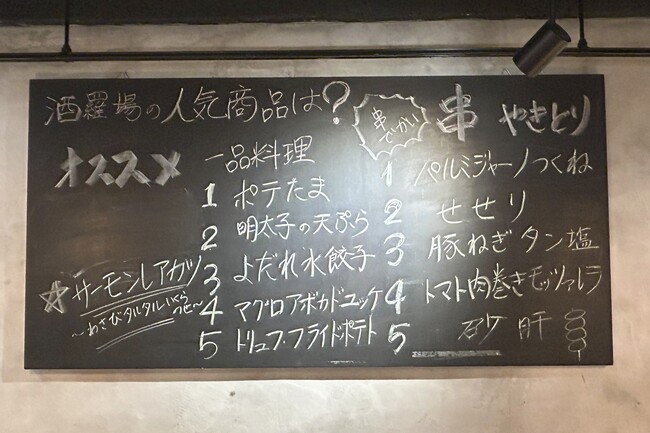 酒羅場の人気商品は?
オススメ
☆サーモンレアカツ
〜わさびタルタルいくらのせ〜
一品料理
1 ポテたま
2 明太子の天ぷら
3 よだれ水餃子
4 マグロアボカドユッケ
5 トリュフ・フライドポテト
串でっかい
串 やきとり
1 パルミジャーノつくね
2 せせり
3 豚ねぎタン塩
4 トマト肉巻きモッツァレラ
5 砂肝